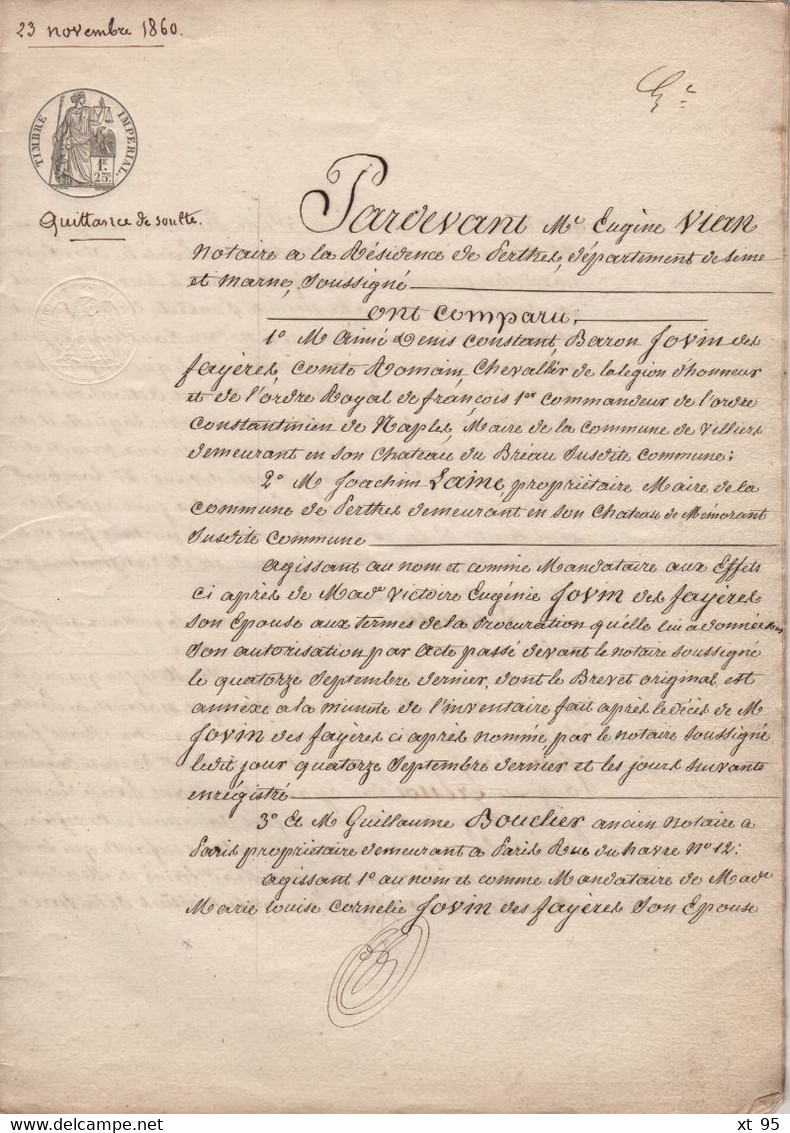 23 novembre 1860.
TIMBRE IMPERIAL.
1F.
25c.
Quittance de soulte.
Pardevant Me Eugène Vian
Notaire a la Résidence de Perthes, département de Seine
et Marne, Soussigné
ont comparu;
1o M Aimé Denis Constant, Baron Jovin des
fayères Comte Romain, Chevallier de la légion d'honneur
et de l'ordre Royal de françois 1er commandeur de l'ordre
Constantinien de Naples, Maire de la Commune de Villiers
demeurant en son Chateau du Bréau Susdite Commune;
2o M Joachim Lainé, propriétaire Maire de la
Commune de Perthes demeurant en son Chateau de Mémorant
Susdite Commune
agissant au nom et comme Mandataire aux Effets
ci après de Made Victoire Eugénie Jovin des fayères
son Epouse aux termes de la Procuration qu'elle lui a donnée sous
Son autorisation par acte passé devant le notaire soussigné
le quatorze Septembre dernier, dont le Brevet original est
annèxé a la minute de l'inventaire fait après le Décès de M
Jovin des fayères ci après nommé, par le notaire Soussigné
ledit jour quatorze Septembre dernier et les jours suivants
enrégistré
3o Et M Guillaume Bouclier ancien Notaire a
Paris propriétaire demeurant a Paris Rue du havre No 12;
agissant 1o au nom et comme Mandataire de Made
Marie Louise Cornélie Jovin des fayères Son Epouse
xt 95